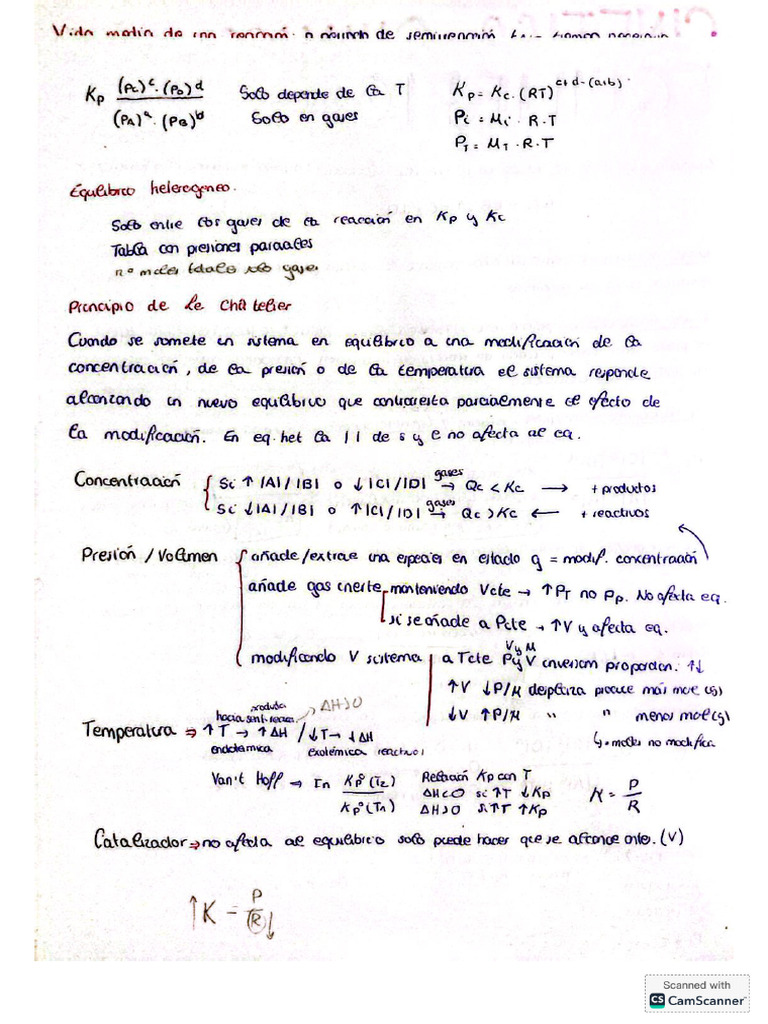 Vida media de una reacción o período de semirreacción
Kp (Pc)ᶜ · (PD)ᵈ / (PA)ᵃ · (PB)ᵇ
Solo depende de la T
Solo en gases
Kp = Kc · (RT)^(c+d-(a+b))
Pi = Mi · R · T
PT = MT · R · T
Equilibrio heterogeneo.
Solo entre los gases de la reacción en Kp y Kc
Tabla con presiones parciales
nº moles totales solo gases
Principio de Le Châtelier
Cuando se somete un sistema en equilibrio a una modificación de la
concentración, de la presión o de la temperatura el sistema responde
alcanzando un nuevo equilibrio que contrarresta parcialmente el efecto de
la modificación. En eq. het la | | de s y l no afecta al eq.
Concentración { Si ↑ |A| / |B| o ↓ |C| / |D| gases → Qc < Kc → + productos
Si ↓ |A| / |B| o ↑ |C| / |D| gases → Qc > Kc ← + reactivos
Presión / Volumen { añade/extrae una especies en estado g = modif. concentración
añade gas inerte, manteniendo V cte → ↑ PT no Pp. No afecta eq.
si se añade a P cte → ↑ V y afecta eq.
modificando V sistema | a T cte P y V inversam proporcion. ↑↓
V y M
↑V ↓P/M desplaza produce más mol (g)
↓V ↑P/M " " menos mol (g)
↳ moles no modifica
Temperatura ⇒ ↑T → ↑ΔH / ↓T → ↓ΔH
productos
hacia sent. reacc
ΔH>0
endotérmica exotérmica reactivo
Van't Hoff → ln Kp°(T2) / Kp°(T1)
Relación Kp con T
ΔH<0 si ↑T ↓Kp
ΔH>0 si ↑T ↑Kp
K = P / R
Catalizador ⇒ no afecta al equilibrio solo puede hacer que se alcance antes. (V)
↑K = P / R ↓
Scanned with
CS CamScanner